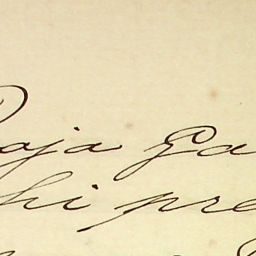 aja Ga
hi pre